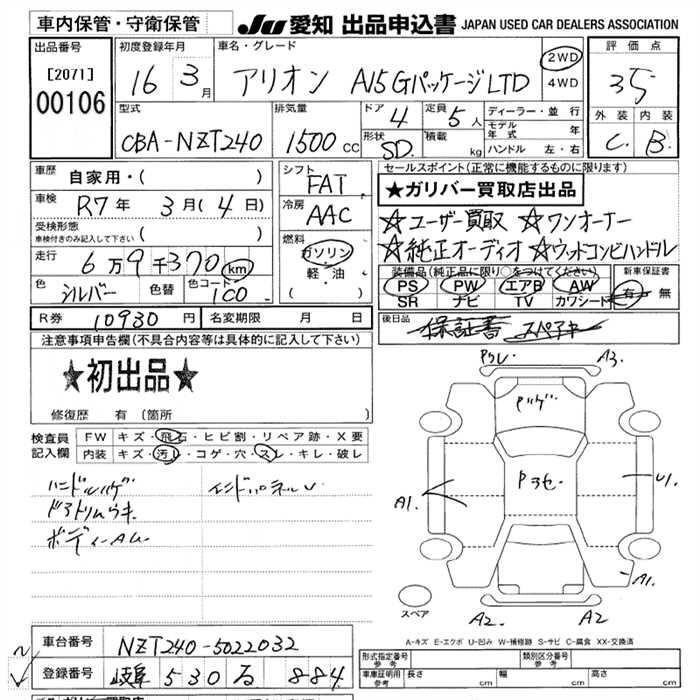 車内保管・守衛保管 JU 愛知 出品申込書 JAPAN USED CAR DEALERS ASSOCIATION
出品番号 初度登録年月 車名・グレード 評価点
[2071] 16 3月 アリオン A15Gパッケージ LTD 2WD 35
00106 4WD
外装 内装
型式 排気量 ドア 4 定員 5人 ディーラー・並行
モデル年式 年
CBA-NZT240 1500 CC 形状 SD. 積載 kg ハンドル 左・右 C. B.
車歴 自家用・( ) シフト FAT セールスポイント(正常に機能するものに限ります)
車検 R7年 3月(4日) 冷房 AAC ★ガリバー買取店出品
受検形態 ☆ユーザー買取 ☆ワンオーナー
車検付きのみ記入して下さい ( ) 燃料 ガソリン ☆純正オーディオ ☆ウッドコンビハンドル
走行 6万9千370 km 軽・油 装備品(純正品に限り○をつけてください) 新車保証書
色 シルバー 色替 色コード 1C0 ( ) PS PW エアB AW 有・無
SR ナビ TV カワシート
R券 10930円 名変期限 月 日 後日品 保証書 スペアキー
注意事項申告欄(不具合内容等は具体的に記入して下さい)
★初出品★
修復歴 有(箇所 )
検査員記入欄 FW キズ・飛石・ヒビ割・リペア跡・X要
内装 キズ・汚れ・コゲ・穴・スレ・キレ・破レ
ハンドルハゲ
ドアトリムウキ
ボディーAU
P3レ A3
A1. U1.
A1.
A2. A2
スペア
A-キズ E-エクボ U-凹み W-補修跡 S-サビ C-腐食 XX-交換済
車台番号 NZT240-5022032
登録番号 岐阜 530 る 884
形式指定番号 参考 類別区分番号 参考
車庫証明用 参考 長さ cm 幅 cm 高さ cm